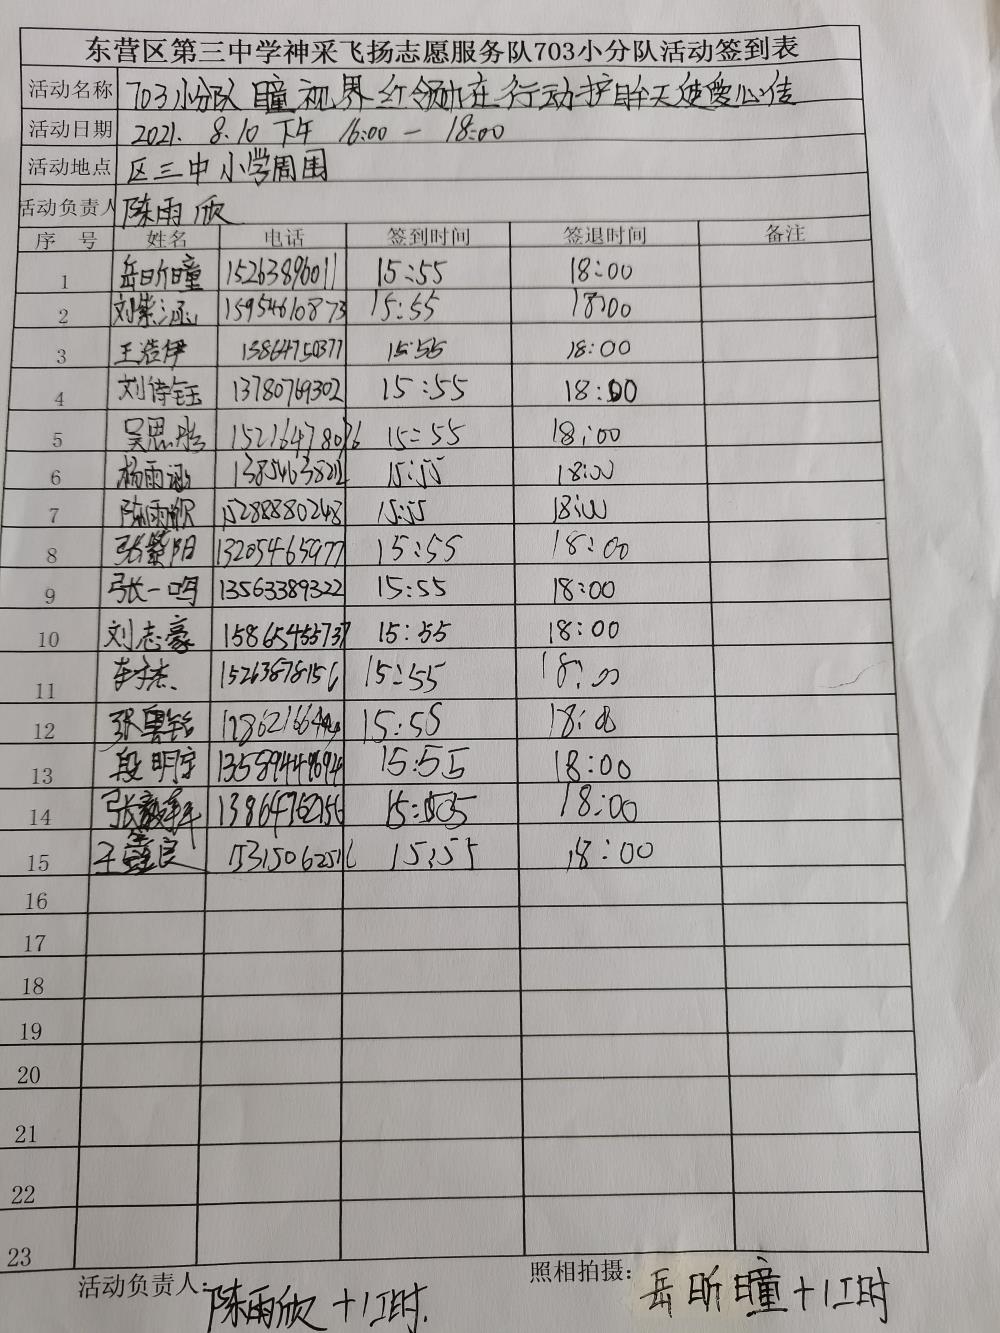 东营区第三中学神采飞扬志愿服务队703小分队活动签到表
活动名称 703小分队 瞳视界 红领巾在行动护眸天使爱心传
活动日期 2021. 8.10 下午 16:00 - 18:00
活动地点 区三中小学周围
活动负责人 陈雨欣
序 号 姓名 电话 签到时间 签退时间 备注
1 岳昕瞳 15263896011 15:55 18:00
2 刘紫涵 15954610873 15:55 18:00
3 王浩伊 13864750377 15:55 18:00
4 刘诗钰 13780769302 15:55 18:00
5 吴思彤 15216478076 15:55 18:00
6 杨雨涵 15:55 18:00
7 陈雨欣 15288880248 15:55 18:00
8 张紫阳 13205465977 15:55 18:00
9 张一鸣 13563389322 15:55 18:00
10 刘志豪 15865455737 15:55 18:00
11 李子杰 15263878156 15:55 18:00
12 15:55 18:00
13 段明宇 15:55 18:00
14 13864762156 15:55 18:00
15 15315062516 15:55 18:00
16
17
18
19
20
21
22
23
活动负责人: 陈雨欣 +1工时. 照相拍摄: 岳昕瞳+1工时